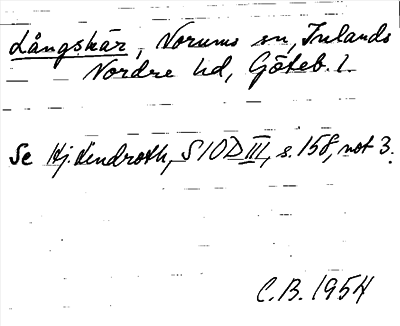 Långskär, Norums sn, Inlands
Nordre hd, Göteb. l.
Se Hj. Lindroth, SIOD III, s. 158, not 3.
C.B. 1954